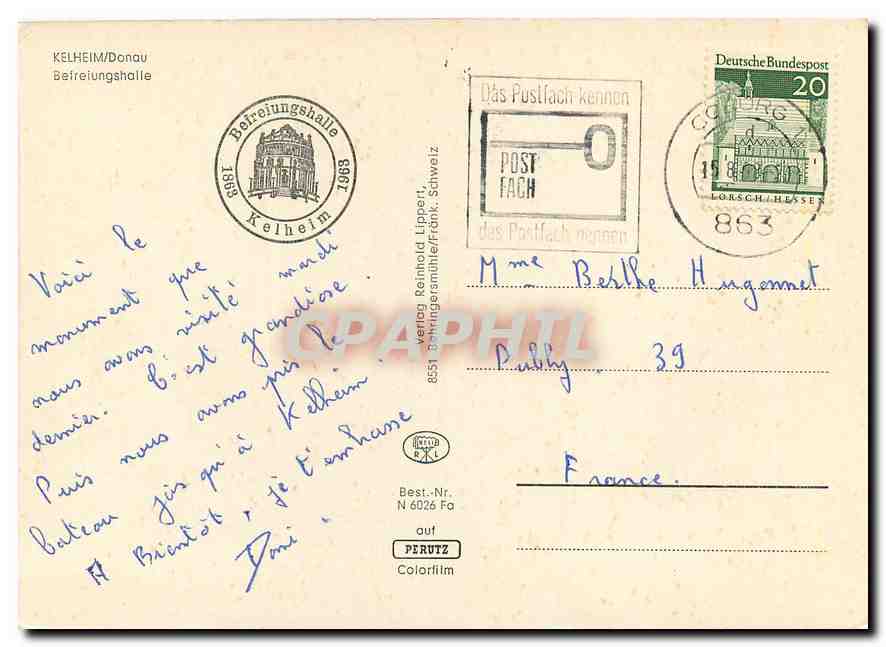 KELHEIM/Donau
Befreiungshalle
Befreiungshalle
1863 1963
Kelheim
Das Postfach kennen
POST
FACH
das Postfach nennen
Deutsche Bundespost
20
LORSCH/HESSEN
COBURG 1
d
15.8
863
Voici le
monument que
nous avons visité mardi
dernier. C'est grandiose.
Puis nous avons pris le
bateau jus qu'à Kelheim.
A Bientôt, je t'embrasse
Domi
Verlag Reinhold Lippert,
8551 Behringersmühle/Fränk. Schweiz
R L
Best.-Nr.
N 6026 Fa
auf
PERUTZ
Colorfilm
Mme Berthe Hugonnet
Publy. 39
France.
CPAPHIL